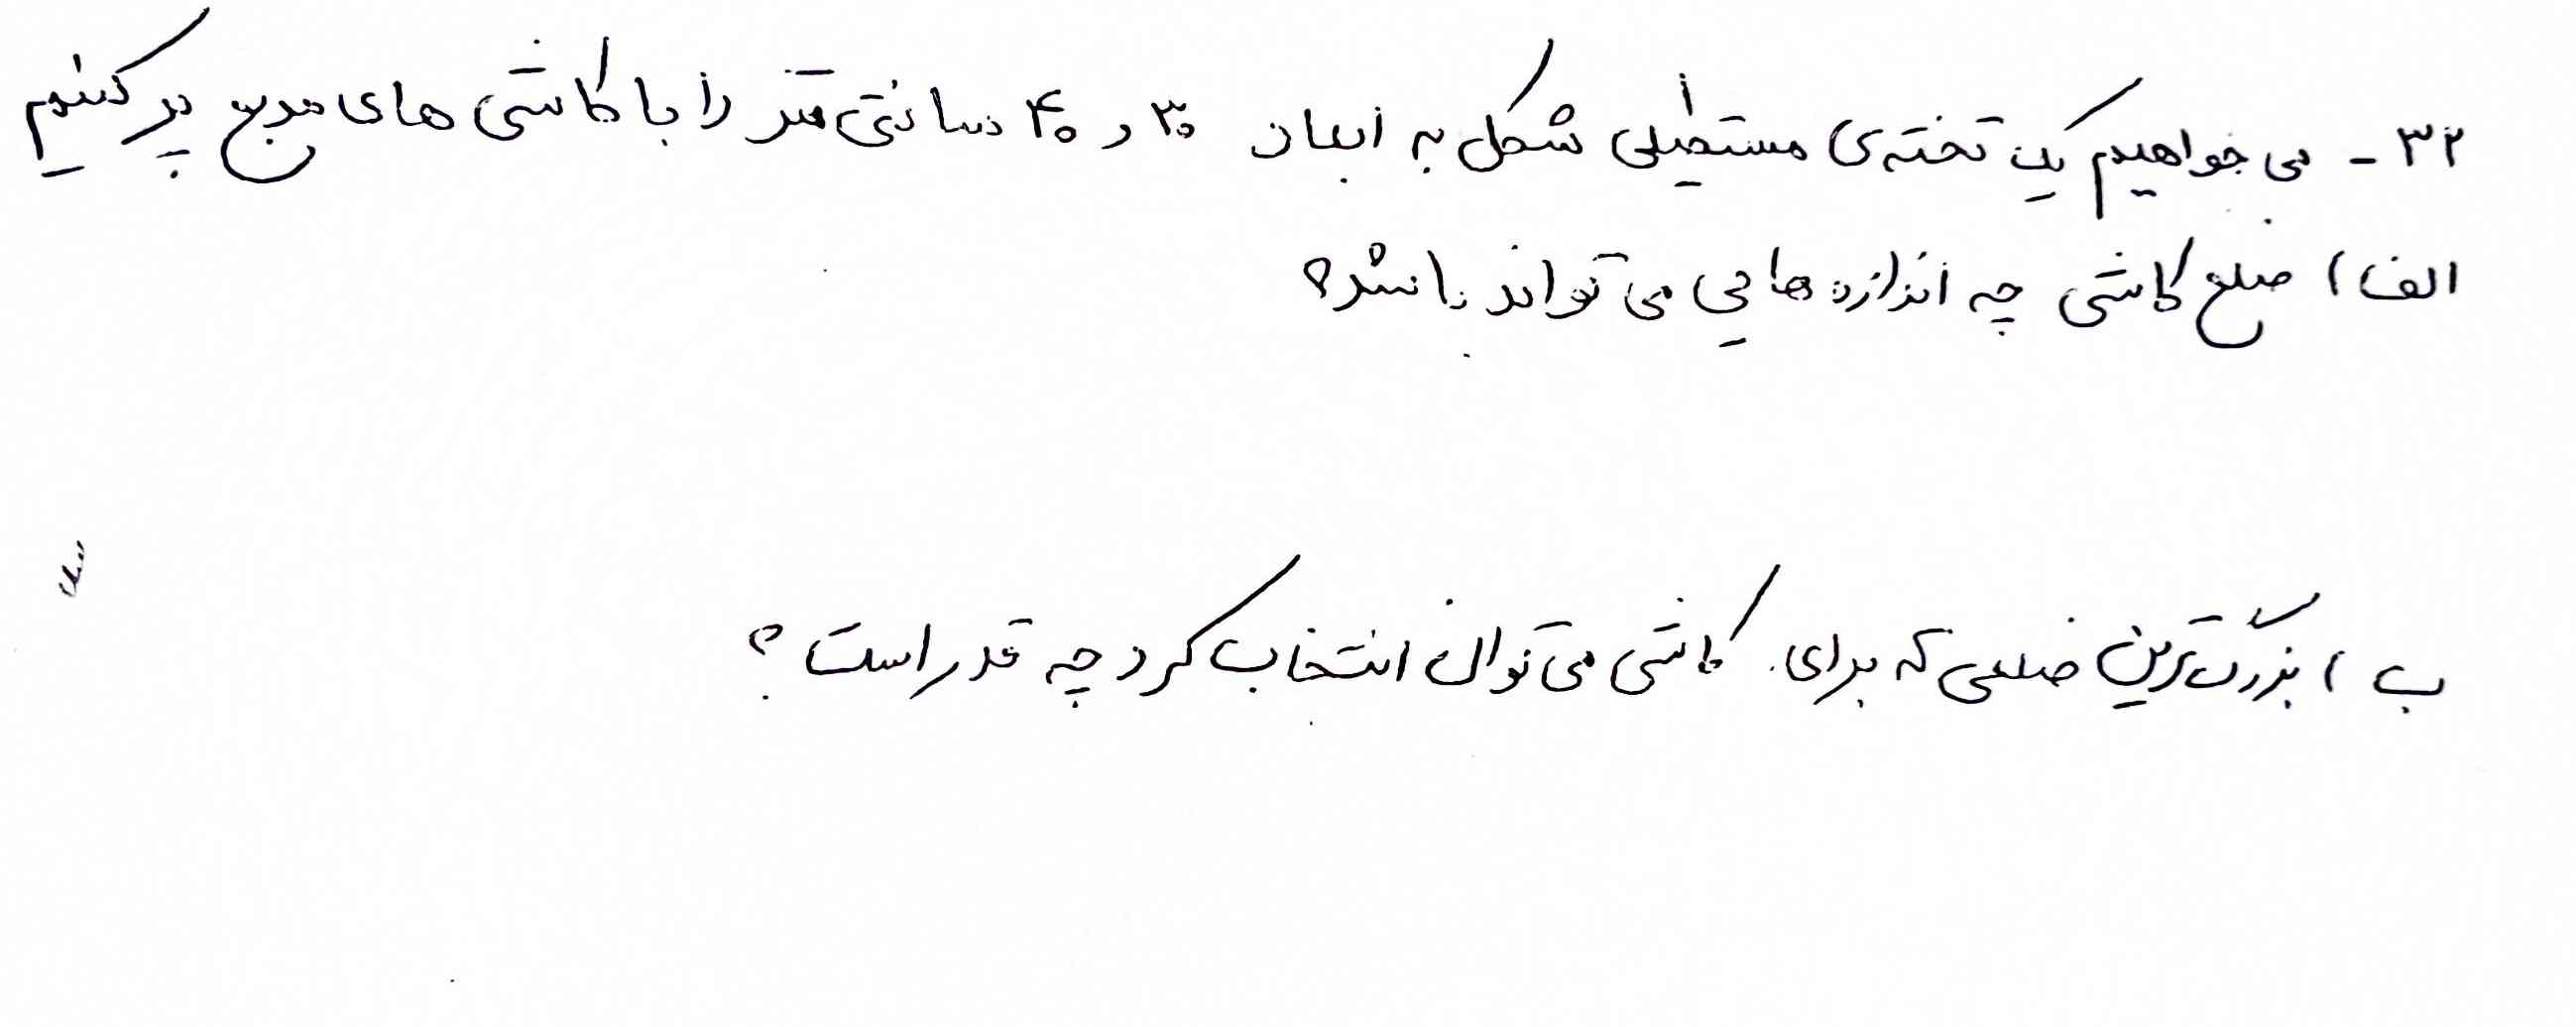 ۳۲ - می خواهیم یک تخته‌ی مستطیلی شکل به ابعاد ۳۰ و ۴۰ سانتی متر را با کاشی های مربع پر کنیم
الف) ضلع کاشی چه اندازه هایی می تواند باشد؟
ب) بزرگ‌ترین ضلعی که برای کاشی می توان انتخاب کرد چه قدر است؟